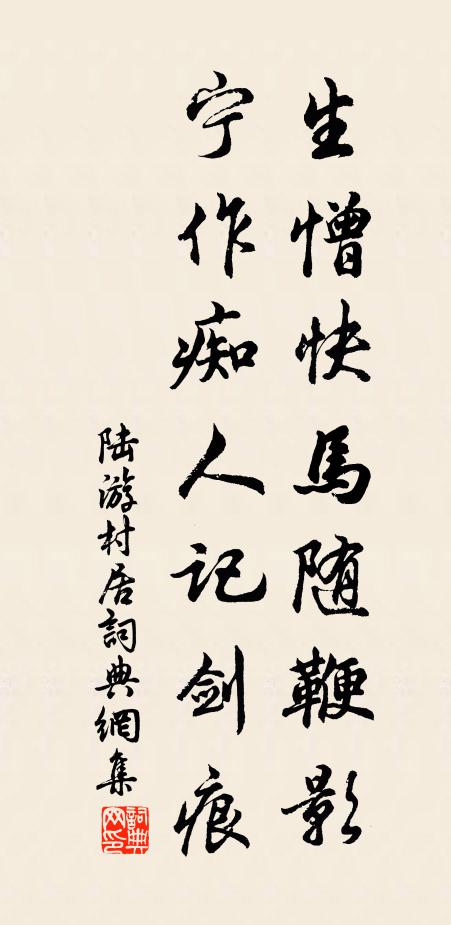 生憎快馬随鞭影
宁作痴人记剑痕
陆游村居詞典網集
詞典网印